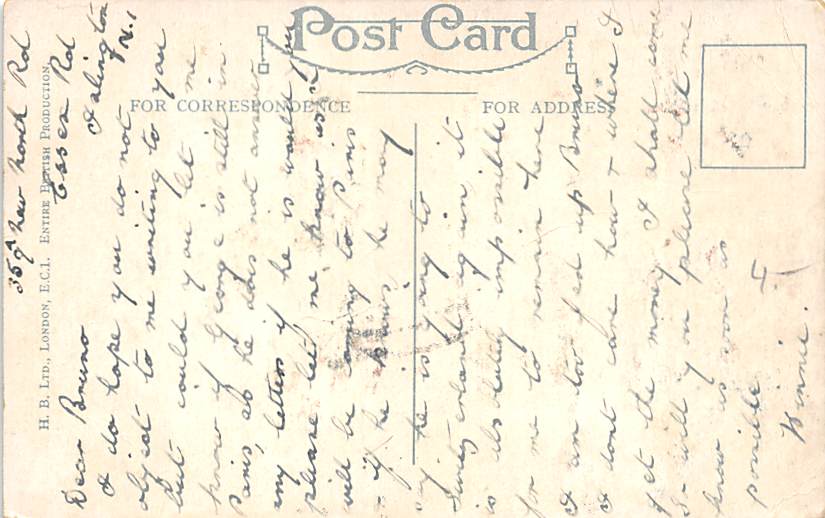 Post Card
FOR CORRESPONDENCE
FOR ADDRESS
H. B. LTD., LONDON, E.C.1. ENTIRE BRITISH PRODUCTION.
New North Rd
Essex Rd
Islington
N.1
Dear Bruno
I do hope you do not
object to me writing to you
but could you let me
know if George is still in
Paris, as he does not answer
my letters if he is would you
please let me know as I
will be coming to Paris
if he is, he may
say he is going to
Switzerland again it
is absolutely impossible
for me to remain here
I am too fed up Bruno
I dont care how & where I
get the money I shall come
So will you please let me
know as soon as
possible
Winnie.